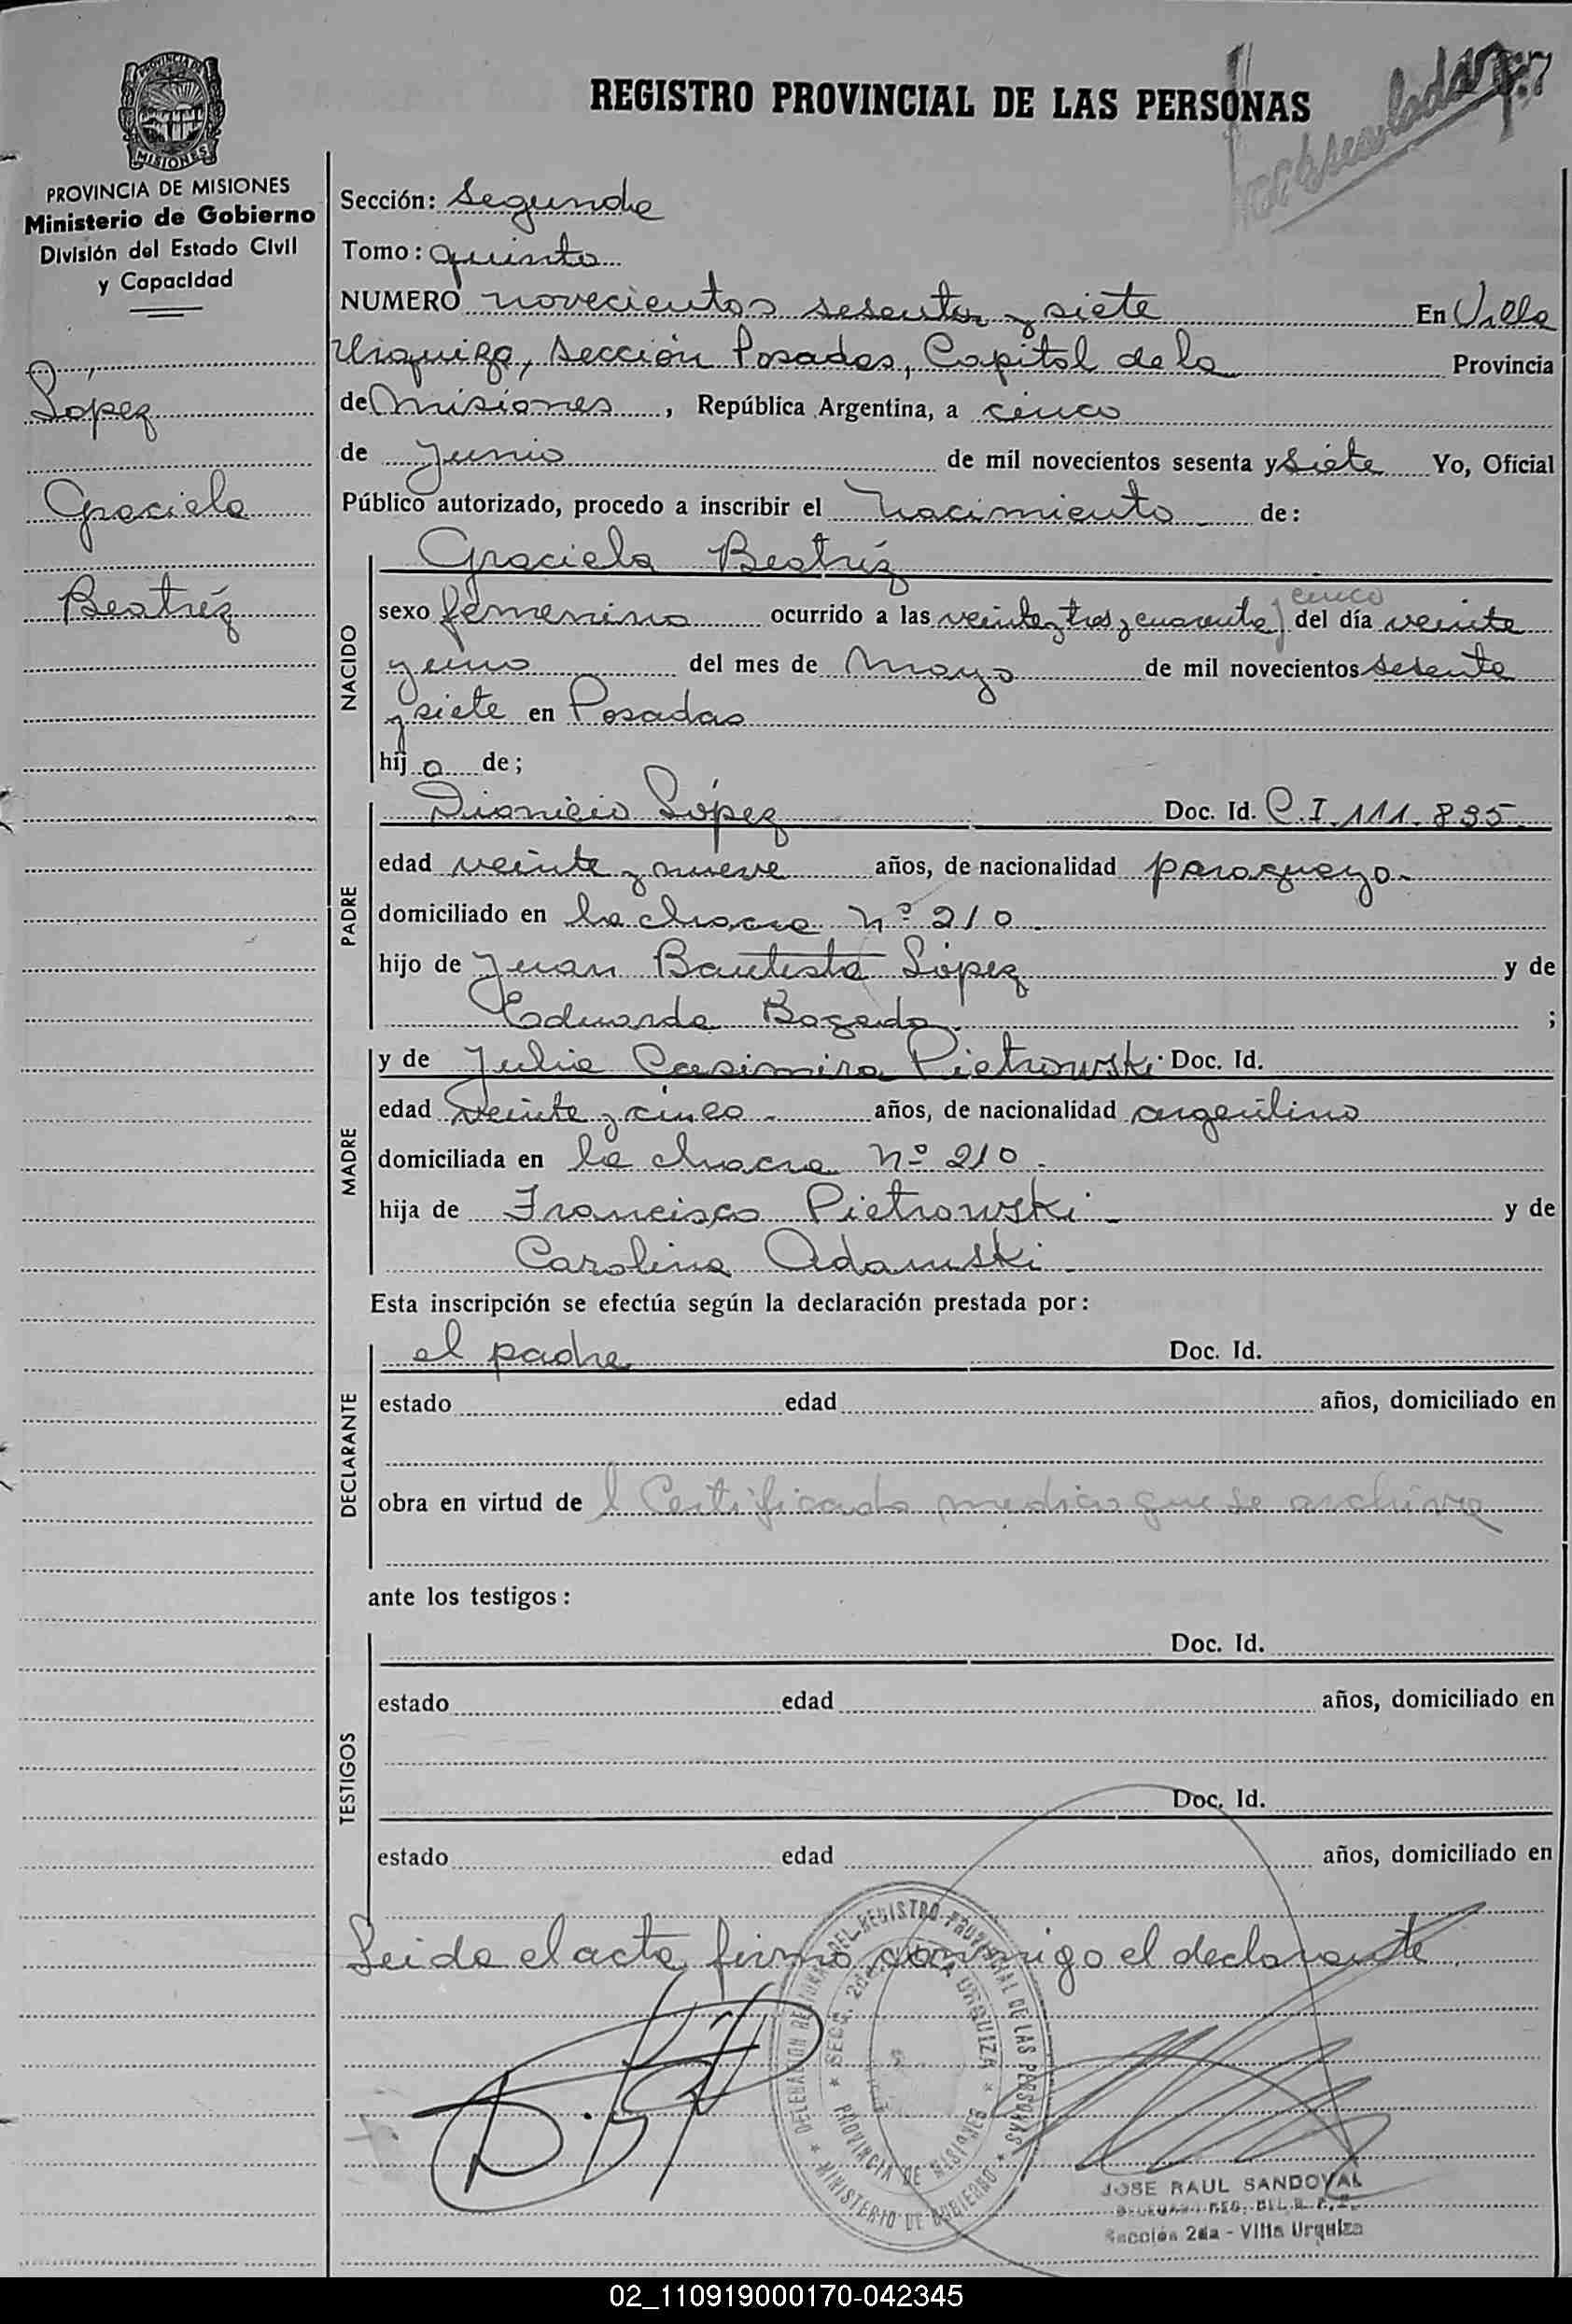 REGISTRO PROVINCIAL DE LAS PERSONAS
PROVINCIA DE
MISIONES
PROVINCIA DE MISIONES
Ministerio de Gobierno
División del Estado Civil
y Capacidad
López
Graciela
Beatríz
Sección: Segunda
Tomo: quinto
NUMERO novecientos sesenta y siete En Villa
Urquiza, Sección Posadas, Capital de la Provincia
de Misiones, República Argentina, a cinco
de Junio de mil novecientos sesenta y Siete Yo, Oficial
Público autorizado, procedo a inscribir el Nacimiento de:
NACIDO
Graciela Beatríz
cinco
sexo femenino ocurrido a las veinte y tres y cuarenta del día veinte
y uno del mes de Mayo de mil novecientos sesenta
y siete en Posadas
hij a de;
PADRE
Dionicio López Doc. Id. C.I. 111.835
edad veinte y nueve años, de nacionalidad paraguayo.
domiciliado en la chacra Nº 210.
hijo de Juan Bautista López y de
Eduarda Bogado. ;
MADRE
y de Julia Casimira Pietrowski. Doc. Id.
edad veinte y cinco. años, de nacionalidad argentina
domiciliada en la chacra Nº 210.
hija de Francisco Pietrowski. y de
Carolina Adamski.
Esta inscripción se efectúa según la declaración prestada por:
DECLARANTE
el padre Doc. Id.
estado edad años, domiciliado en
obra en virtud de l Certificado medico que se archiva
ante los testigos:
TESTIGOS
Doc. Id.
estado edad años, domiciliado en
Doc. Id.
estado edad años, domiciliado en
Leida el acta firma conmigo el declarante
DELEGACION DEL REGISTRO PROVINCIAL DE LAS PERSONAS
MINISTERIO DE GOBIERNO
SECC. 2da. URQUIZA
PROVINCIA DE MISIONES
JOSE RAUL SANDOVAL
Sección 2da - Villa Urquiza
02_110919000170-042345